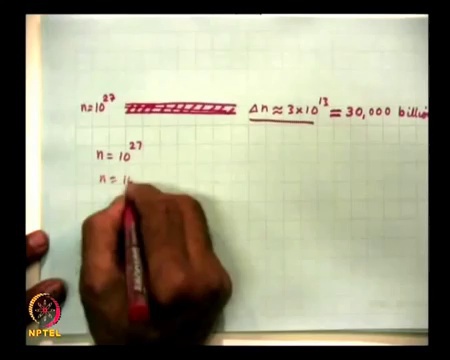 n=10²⁷ Δn ≈ 3×10¹³ = 30,000 billi
n = 10²⁷
n =
NPTEL